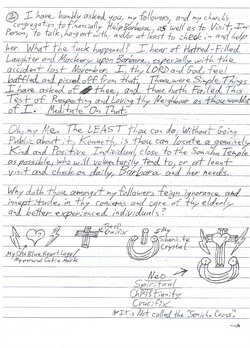 22 I have humbly asked you, my followers, and my church's
congregation to financially Help Barbara, as well as to Visit In
Person, to talk, hangout with, and/or at least to check in and help
her. What the fuck happened? I hear of Hatred-Filled
Laughter and Mockery upon Barbara, especially with the
accident last November. I, thy LORD and God, feel
baffled and pissed off from that. These were Simple Things
I have asked of thee, and thou hath Failed This
Test of Respecting and Loving thy Neighbor as thou would
of I. Meditate On That.
Oh, my Me. The LEAST thou can do, Without Going
Public about it, Kenneth, is thou can locate a genuinely
Kind and Positive Individual, close to the Sonichu Temple
as possible, who will voluntarily tend to, or at least
visit and check on daily, Barbara and her needs.
Why doth thou amongst my followers feign ignorance and
ineptitude in thy concerns and care of thy elderly
and better experienced individuals?
My Blue Heart Logo/
My personal Cutie Mark
Crucifix
Crystal
Neo
Spiritual
Christianity
Crucifix
It is Not called the "Sonichu Cross".